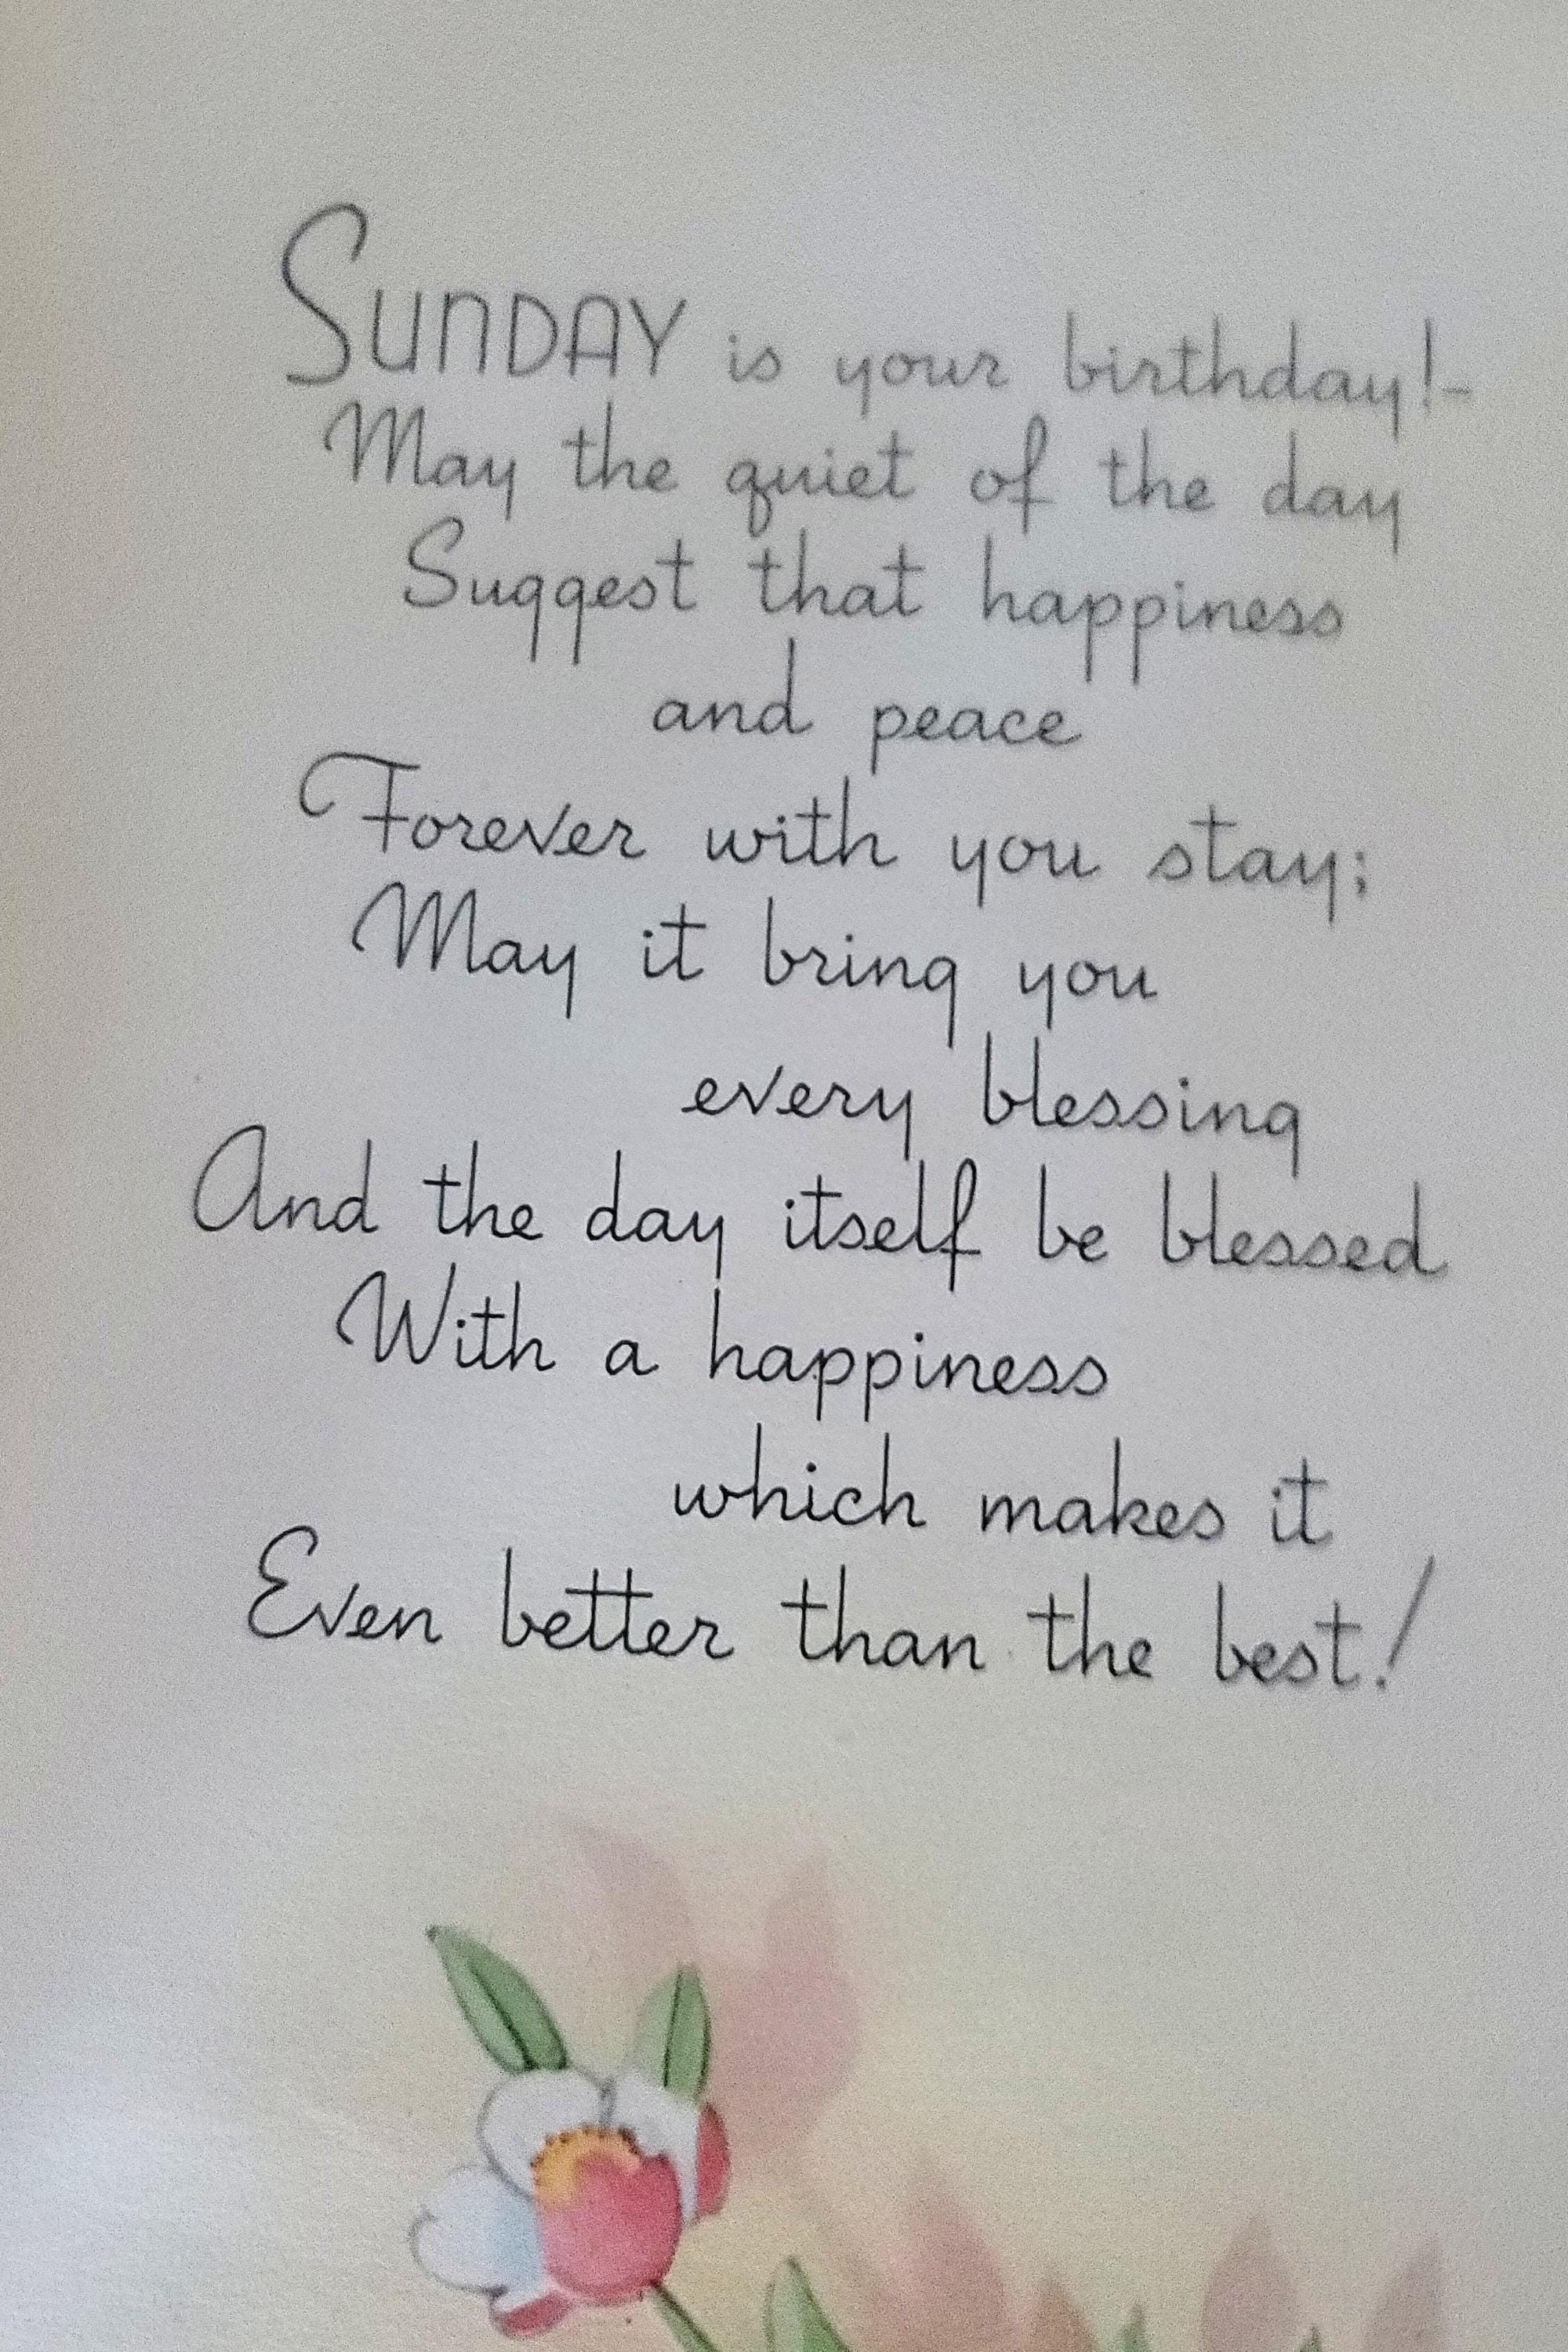 SUNDAY is your birthday!-
May the quiet of the day
Suggest that happiness
and peace
Forever with you stay;
May it bring you
every blessing
And the day itself be blessed
With a happiness
which makes it
Even better than the best!